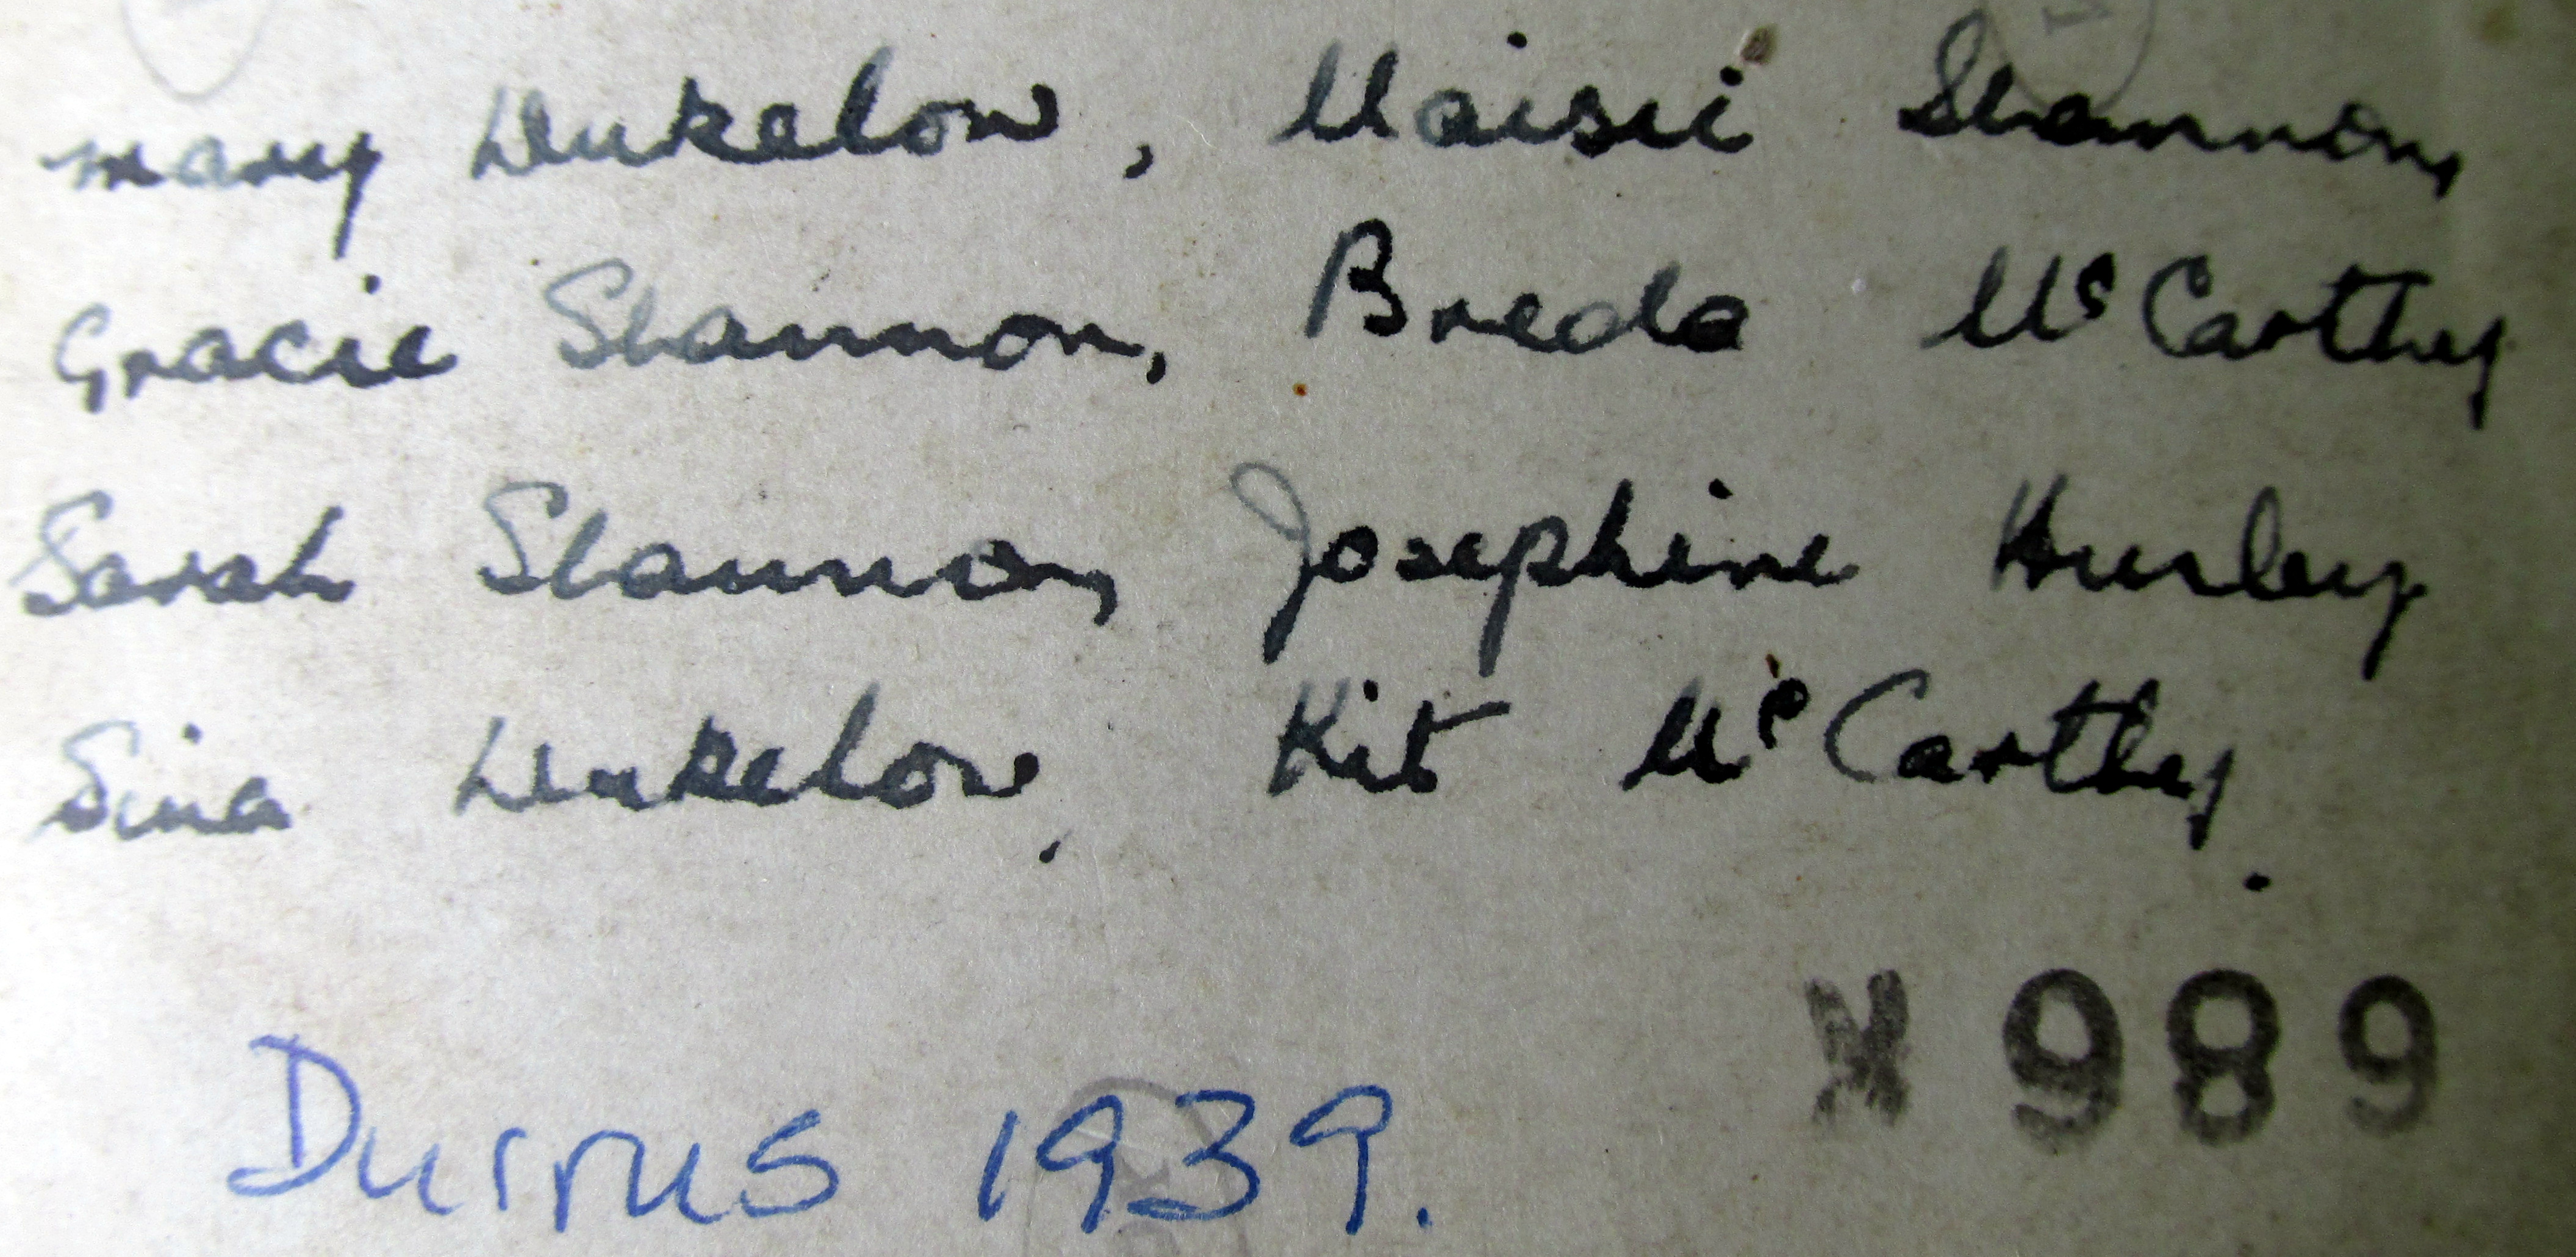 Mary Dukelow, Maisie Shannon,
Gracie Shannon, Breda McCarthy
Sarah Shannon, Josephine Hurley
Sina Dukelow, Kit McCarthy.
989
Durrus 1939.